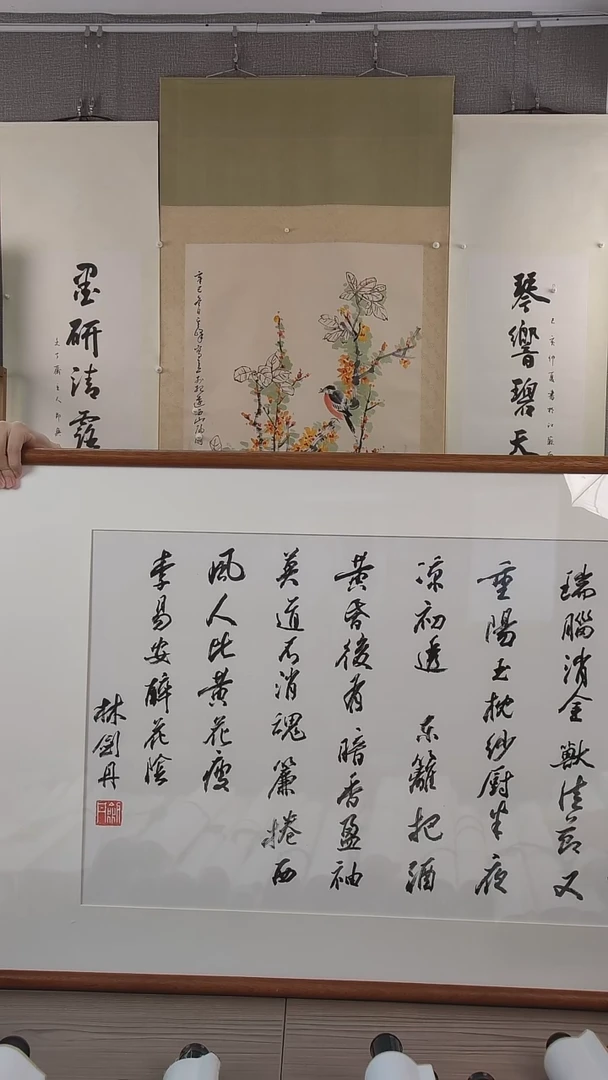 琴響碧天
墨研清露
瑞腦消金獸佳節又
重陽玉枕紗厨半夜
涼初透 東籬把酒
黃昏後有暗香盈袖
莫道不消魂簾捲西
風人比黃花瘦
李易安醉花陰
林劍丹